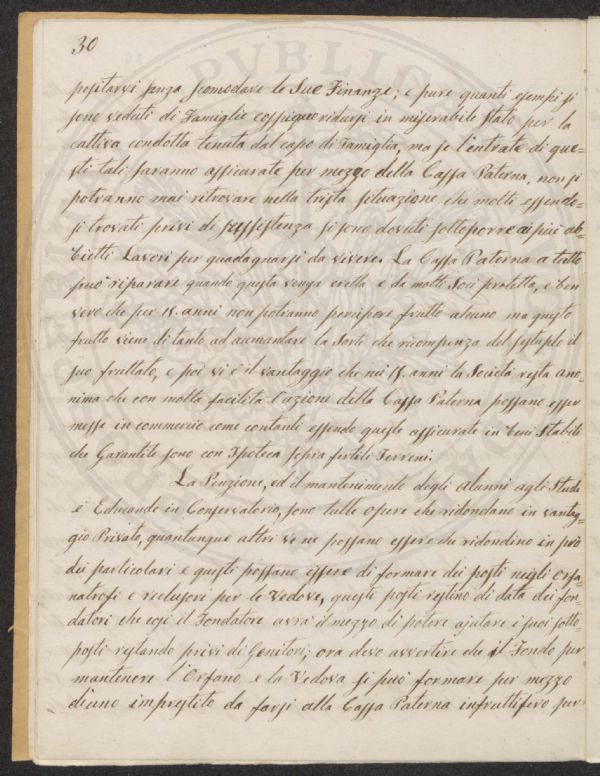 30
positarvi senza scomodare le Sue Finanze; e pure quanti esempi si
sono veduti di Famiglie cospique ridursi in miserabile stato per la
cattiva condotta tenuta dal capo di Famiglia, ma se l'entrate di que=
sti tali saranno assicurate per mezzo della Cassa Paterna, non si
potranno mai ritrovare nella trista situazione che molti essendo=
si trovati privi di sussistenza si sono dovuti sottoporre ai più ab=
bietti Lavori per guadagnarsi da vivere. La Cassa Paterna a tutto
può riparare quando questa venga eretta e da molti Soci protetta, è ben
vero che per 15. anni non potranno percipere frutto alcuno ma questo
frutto viene di tanto ad aumentare la Sorte che ricompenza del sestuplo il
suo fruttato, e poi vi è il vantaggio che nei 15. anni la Società resta ano=
nima che con molta facilità l'azioni della Cassa Paterna possano esser
messe in commercio come contanti essendo queste assicurate in beni Stabili
che Garantite sono con Ipoteca sopra fertili Terreni.
La Penzione, ed il mantenimento degli Alunni agli Studi
e Educande in Conservatorio, sono tutte opere che ridondano in vantag=
gio Privato, quantunque altri ve ne possano essere che ridondino in prò
dei particolari e questi possano essere di formare dei posti negli Orfa=
natrofi e reclusori per le Vedove, questi posti restino di data dei fon=
datori che così il Fondatore avrà il mezzo di potere ajutare i suoi sotto=
posti restando privi di Genitori; ora devo avvertire che il Fondo per
mantenere l'Orfano e la Vedova si può formare per mezzo
di uno imprestito da farsi alla Cassa Paterna infruttifero per